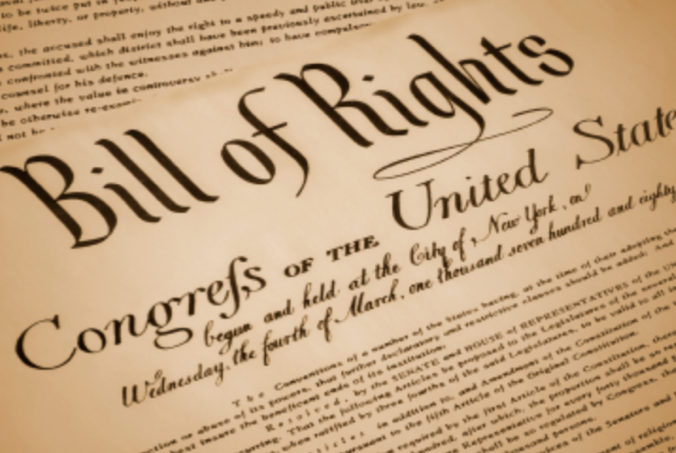 to be twice put in
life, liberty, or property, without due
the accused shall enjoy the right to a speedy and public
committed, which district shall have been previously ascertained by law,
confronted with the witnesses against him; to have
counsel for his defence.
where the value in controversy
be otherwise re-exam
not be
Bill of Rights
Congreſs OF THE United State
begun and held at the City of New York, on
Wednesday, the fourth of March, one thousand seven hundred and eighty
The Conventions of a number of the States having, at the time of their adopting the
or abuse of its powers, that further declaratory and restrictive clauses should be added: And
best insure the beneficent ends of its institution:
Resolved, by the SENATE and HOUSE of REPRESENTATIVES of the UN
That the following Articles be proposed to the Legislatures of the several
when ratified by three fourths of the said Legislatures, to be valid to all in
Articles in addition to, and Amendment of the Constitution of the
to the fifth Article of the Original Constitution.
required by the first Article of the Constitution, there
hundred, after which, the proportion shall be so
Representative for every forty thousand
shall be so regulated by Congress,
thousand persons.
of the Senators and
of religion